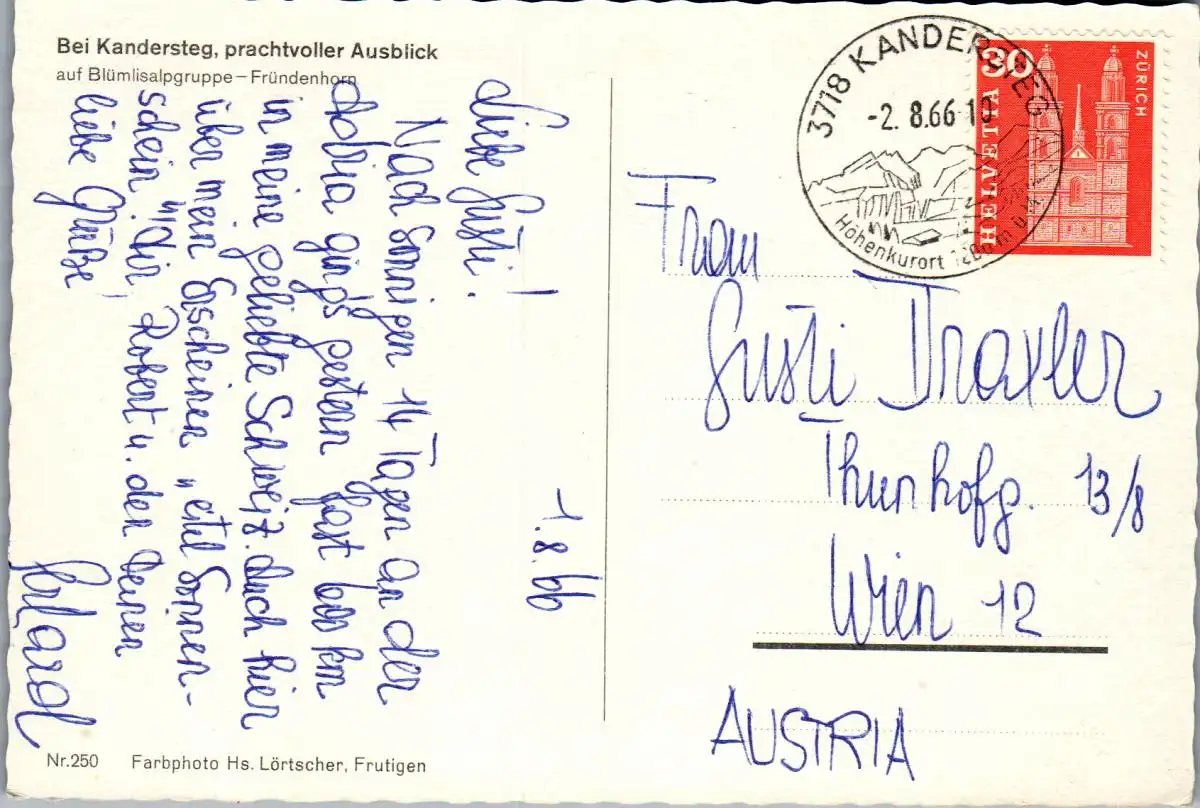 Bei Kandersteg, prachtvoller Ausblick
auf Blümlisalpgruppe–Fründenhorn
1.8.66
Liebe Gusti!
Nach sonnigen 14 Tagen an der
Adria ging's gestern fast 600 km
in meine geliebte Schweiz. Auch hier
über mein Erscheinen „eitel Sonnen-
schein". Dir, Robert u. den Deinen
liebe Grüße,
Nr.250 Farbphoto Hs. Lörtscher, Frutigen
3718 KANDERSTEG
-2.8.66 10
Höhenkurort 1200 m ü.M.
30
HELVETIA
ZÜRICH
Frau
Gusti Draxler
Thunhofg. 13/8
Wien 12
AUSTRIA